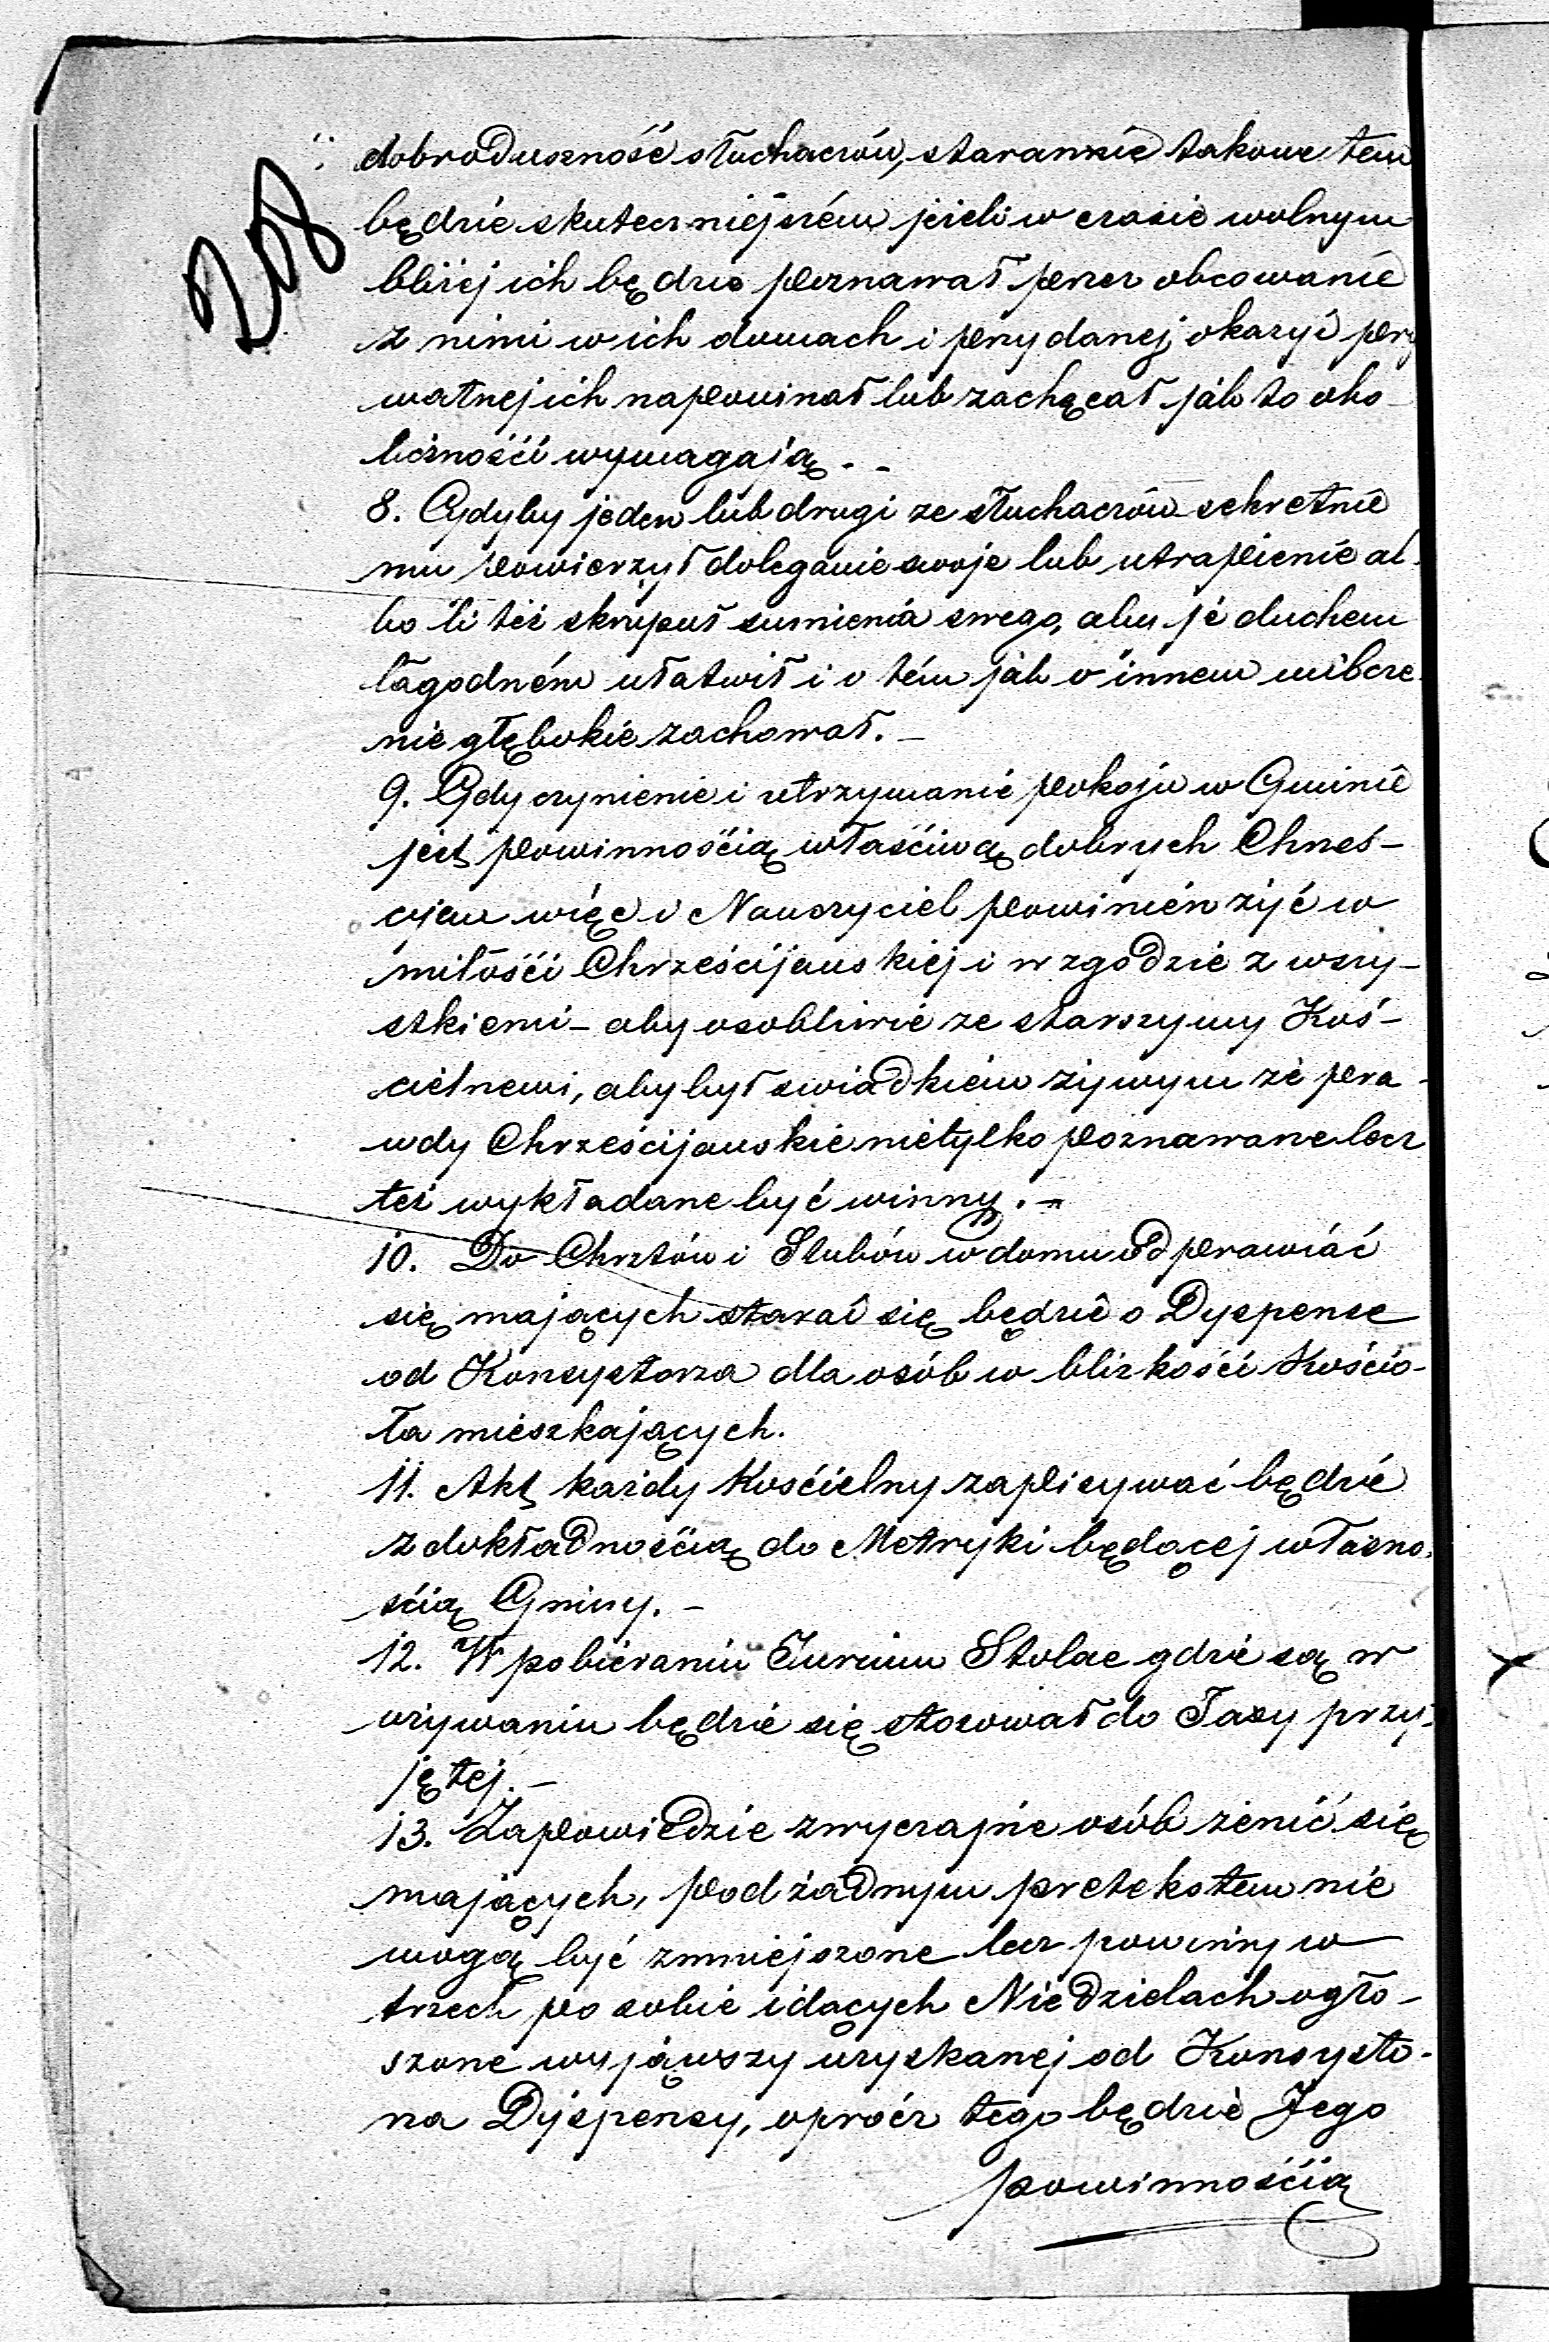 208
dobroduszność słuchaczów, staranie takowe tem
będzie skuteczniejszém jeżeli w czasie wolnym
bliżej ich będzie poznawał przez obcowanie
z nimi w ich domach i przy danej okazyi pry
watnej ich napominał lub zachęcał jak to oko-
liczności wymagają. -
8. Gdyby jeden lub drugi ze słuchaczów sekretnie
mu powierzył doleganie swoje lub utrapienie al-
bo li też skrupuł sumienia swego, aby je duchem
łagodném ułatwił i o tém jak o innem milcze-
nie głębokie zachował. -
9. Gdy czynienie i utrzymanie pokoju w Gminie
jest powinnością właściwą dobrych Chrześ-
cjan więc i Nauczyciel powinien żyć w
miłości Chrześcijańskiej i w zgodzie z wszy-
stkiemi - aby osobliwie ze starszymy Koś-
cielnemi, aby był swiadkiem żywym że pra-
wdy Chrześcijańskie nietylko poznawane lecz
też wykładane być winny. -
10. Do Chrztów i Slubów w domu odprawiać
się mających starał się będzie o Dyspense
od Konsystorza dla osób w blizkości Kościo-
ła mieszkających.
11. Akt każdy Kościelny zapisywać będzie
z dokładnością do Metryki będącej własno-
ścią Gminy. -
12. W pobieraniu Jurium Stolae gdzie są w
używaniu będzie się stosował do Taxy przy-
jętej. -
13. Zapowiedzie zwyczajne osób żenić się
mających, pod żadnym pretekstem nie
mogą być zmniejszone lecz powinny w
trzech po sobie idących Niedzielach ogło-
szone wyjąwszy uzyskanej od Konsysto-
rza Dyspensy, oprócz tego będzie Jego
powinnością